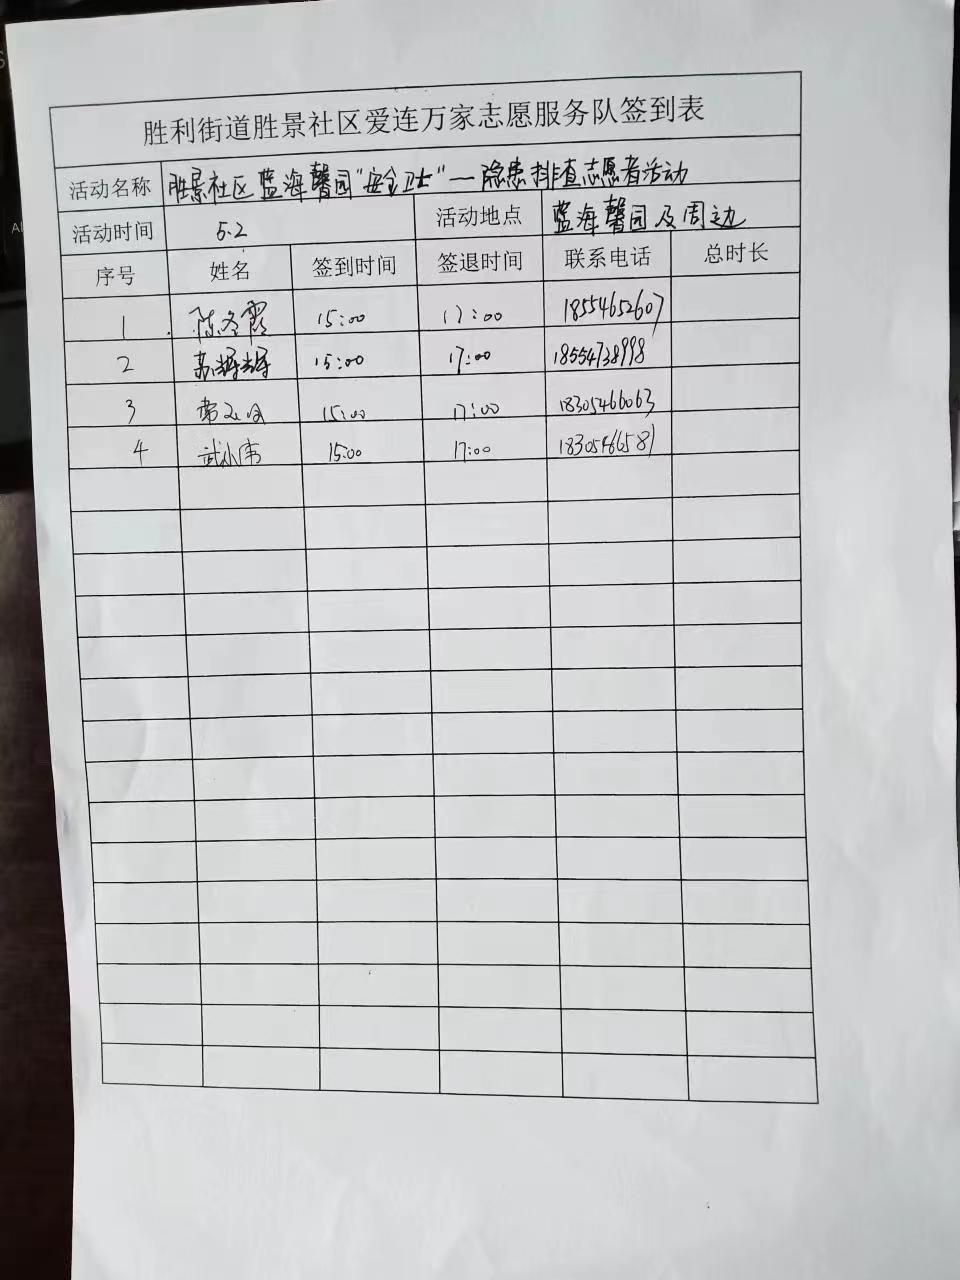 胜利街道胜景社区爱连万家志愿服务队签到表
活动名称 胜景社区蓝海馨园"安全卫士"—隐患排查志愿者活动
活动时间 5.2 活动地点 蓝海馨园及周边
序号 姓名 签到时间 签退时间 联系电话 总时长
1 陈冬霞 15:00 17:00 18554652607
2 15:00 17:00 18554738998
3 15:00 17:00 18305466063
4 武小伟 15:00 17:00 18305466581